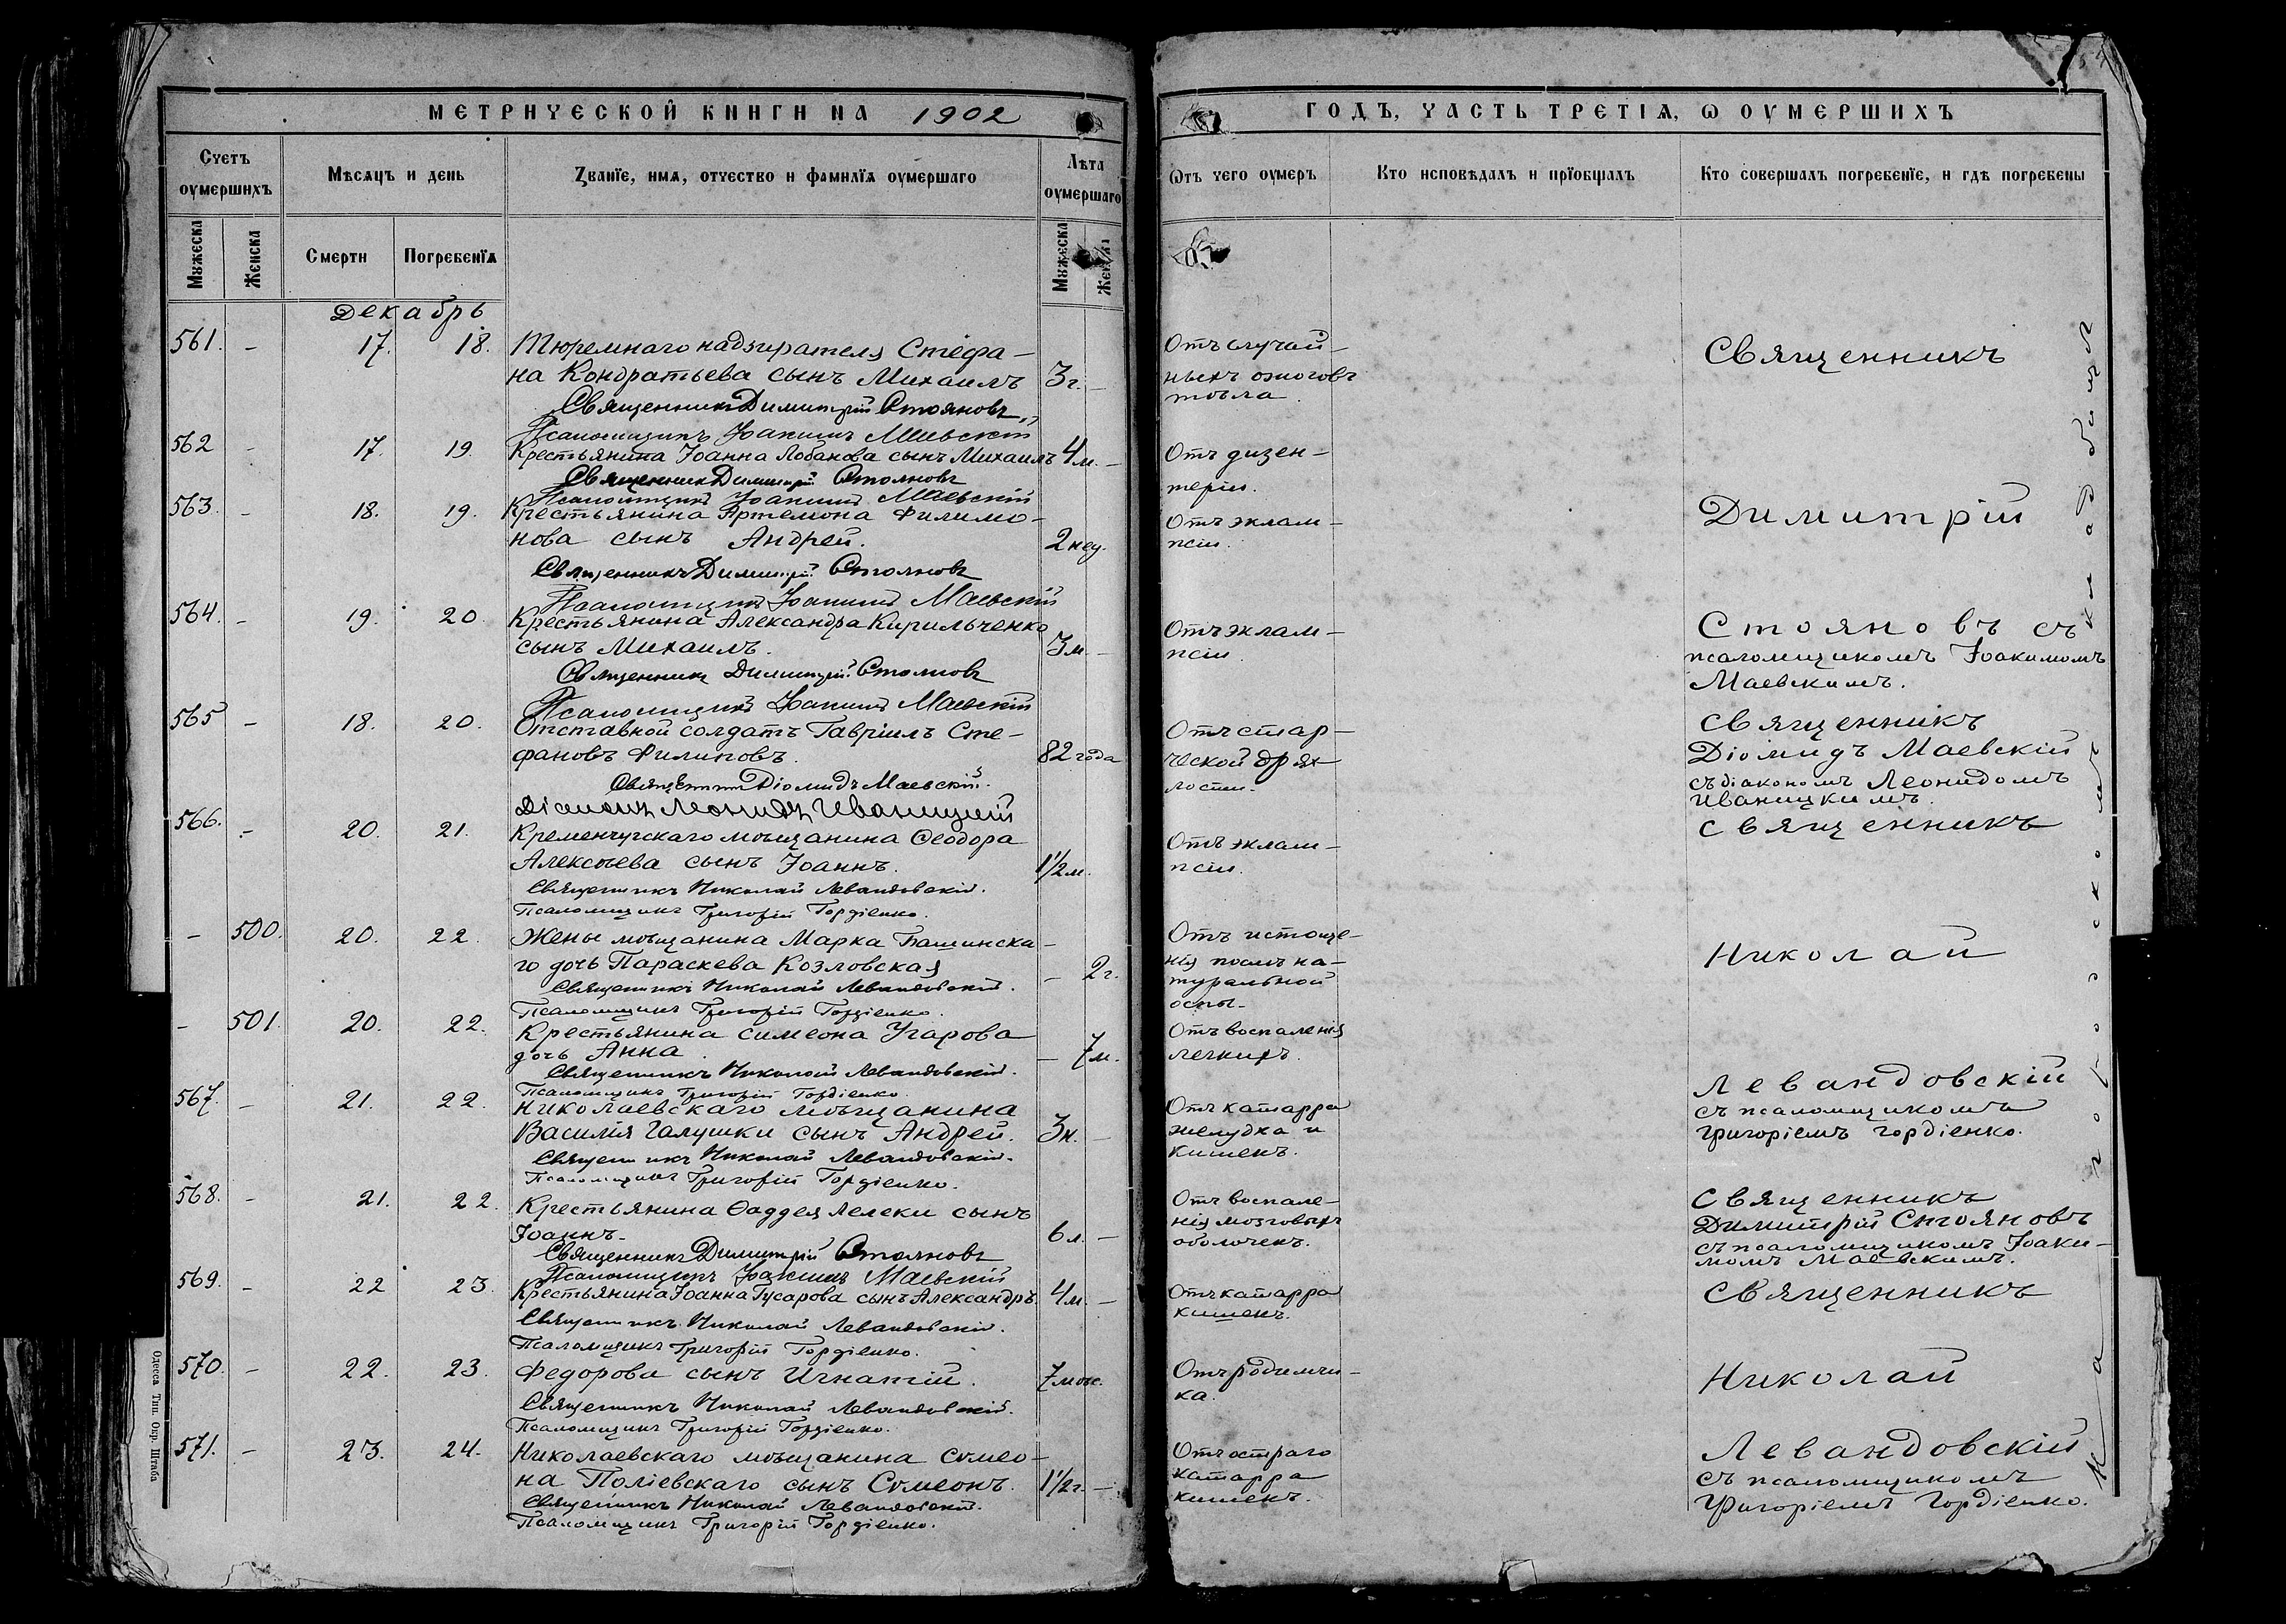 МЕТРИЧЕСКОЙ КНИГИ НА 1902
Счетъ оумершихъ
Мѣсяцъ и день
Званїе, имя, отчество и фамилїя оумершаго
Лѣта оумершаго
Мужеска
Женска
Смерти
Погребенїя
Мужеска
Декабрь
561. - 17. 18. Тюремнаго надзирателя Стефа-
на Кондратьева сынъ Михаилъ 3г. -
Священникъ Димитрій Стояновъ
Псаломщикъ Іоакимъ Маевскій
562 - 17. 19. Крестьянина Іоанна Лобанова сынъ Михаилъ 4м. -
Священникъ Димитрій Стояновъ
Псаломщикъ Іоакимъ Маевскій
563. - 18. 19. Крестьянина Артемона Филимо-
нова сынъ Андрей. 2 нед.
Священникъ Димитрій Стояновъ
Псаломщикъ Іоакимъ Маевскій
564. - 19. 20. Крестьянина Александра Кирильченко
сынъ Михаилъ. 3м. -
Священникъ Димитрій Стояновъ
Псаломщикъ Іоакимъ Маевскій
565 - 18. 20. Отставной солдатъ Гавріилъ Сте-
фановъ Филиповъ. 82 года
Священникъ Діомидъ Маевскій.
Діаконъ Леонидъ Иваницкій
566. - 20. 21. Кременчугскаго мѣщанина Ѳеодора
Алексѣева сынъ Іоаннъ. 1½ м.
Священникъ Николай Левандовскій.
Псаломщикъ Григорій Гордіенко.
- 500. 20. 22. Жены мѣщанина Марка Башинска-
го дочь Параскева Козловская - 2г.
Священникъ Николай Левандовскій.
Псаломщикъ Григорій Гордіенко.
- 501. 20. 22. Крестьянина Симеона Угарова
дочь Анна. - 7м.
Священникъ Николай Левандовскій.
Псаломщикъ Григорій Гордіенко.
567. - 21. 22. Николаевскаго мѣщанина
Василія Галушки сынъ Андрей. 3н. -
Священникъ Николай Левандовскій.
Псаломщикъ Григорій Гордіенко.
568. - 21. 22. Крестьянина Ѳаддея Лелеки сынъ
Іоаннъ. 6л. -
Священникъ Димитрій Стояновъ
Псаломщикъ Іоакимъ Маевскій
569. - 22 23. Крестьянина Іоанна Гусарова сынъ Александръ. 4м. -
Священникъ Николай Левандовскій.
Псаломщикъ Григорій Гордіенко.
570. - 22. 23. Федорова сынъ Игнатій. 7 мѣс.
Священникъ Николай Левандовскій.
Псаломщикъ Григорій Гордіенко.
571. - 23. 24. Николаевскаго мѣщанина Сѵмео-
на Поліевскаго сынъ Сѵмеонъ. 1½ г. -
Священникъ Николай Левандовскій.
Псаломщикъ Григорій Гордіенко.
Одесса Тип. Окр. Штаба
ГОДЪ, ЧАСТЬ ТРЕТІЯ, Ѡ ОУМЕРШИХЪ
Ѿтъ чего оумеръ
Кто исповѣдалъ и прїобщалъ
Кто совершалъ погребенїе, и гдѣ погребены
Отъ случай-
ныхъ ожоговъ
тѣла.
Отъ дизен-
теріи.
Отъ эклам-
псіи.
Отъ эклам-
псіи.
Отъ стар-
ческой дрях-
лости.
Отъ эклам-
псіи.
Отъ истоще-
нія послѣ на-
туральной
оспы.
Отъ воспаленія
легкихъ.
Отъ катарра
желудка и
кишекъ.
Отъ воспале-
нія мозговыхъ
оболочекъ.
Отъ катарра
кишекъ.
Отъ родимчи-
ка.
Отъ остраго
катарра
кишекъ.
Священникъ
Димитрій
Стояновъ съ
псаломщикомъ Іоакимомъ
Маевскимъ.
Священникъ
Діомидъ Маевскій
съ діакономъ Леонидомъ
Иваницкимъ.
Священникъ
Николай
Левандовскій
съ псаломщикомъ
Григоріемъ Гордіенко.
Священникъ
Димитрій Стояновъ
съ псаломщикомъ Іоаки-
момъ Маевскимъ.
Священникъ
Николай
Левандовскій
съ псаломщикомъ
Григоріемъ Гордіенко.
На городскомъ кладбищѣ